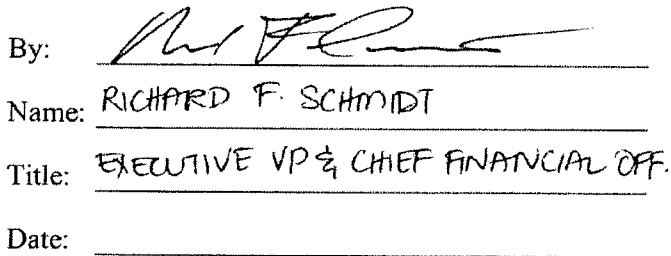 By:
Name: RICHARD F. SCHMIDT
Title: EXECUTIVE VP & CHIEF FINANCIAL OFF.
Date: